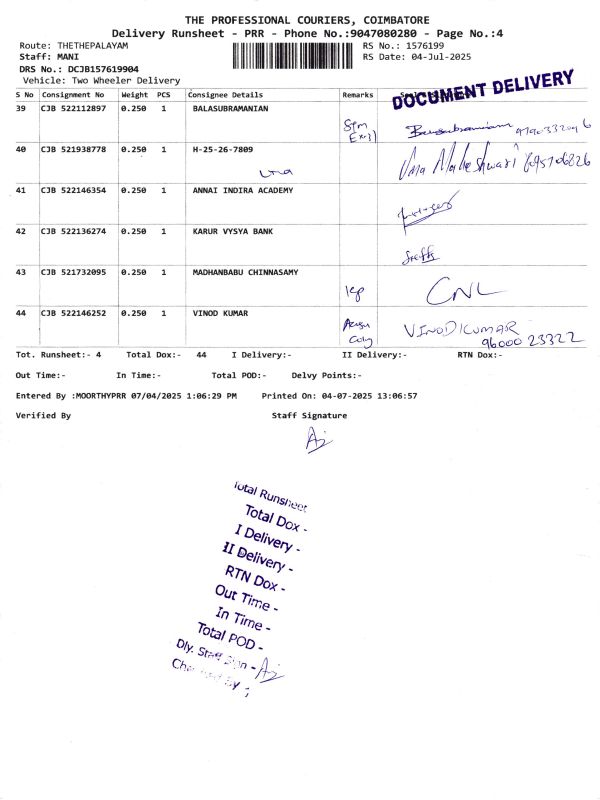 THE PROFESSIONAL COURIERS, COIMBATORE
Delivery Runsheet - PRR - Phone No.:9047080280 - Page No.:4
Route: THETHEPALAYAM RS No.: 1576199
Staff: MANI RS Date: 04-Jul-2025
DRS No.: DCJB157619904
Vehicle: Two Wheeler Delivery
DOCUMENT DELIVERY
S No Consignment No Weight PCS Consignee Details Remarks
39 CJB 522112897 0.250 1 BALASUBRAMANIAN
Balasubramaniam
40 CJB 521938778 0.250 1 H-25-26-7809
Uma Maheshwari
41 CJB 522146354 0.250 1 ANNAI INDIRA ACADEMY
42 CJB 522136274 0.250 1 KARUR VYSYA BANK
43 CJB 521732095 0.250 1 MADHANBABU CHINNASAMY
CNL
44 CJB 522146252 0.250 1 VINOD KUMAR
VINODKUMAR
96000 23322
Tot. Runsheet:- 4 Total Dox:- 44 I Delivery:- II Delivery:- RTN Dox:-
Out Time:- In Time:- Total POD:- Delvy Points:-
Entered By :MOORTHYPRR 07/04/2025 1:06:29 PM Printed On: 04-07-2025 13:06:57
Verified By Staff Signature
Total Runsheet
Total Dox -
I Delivery -
II Delivery -
RTN Dox -
Out Time -
In Time -
Total POD -
Dly. Staff Sign -